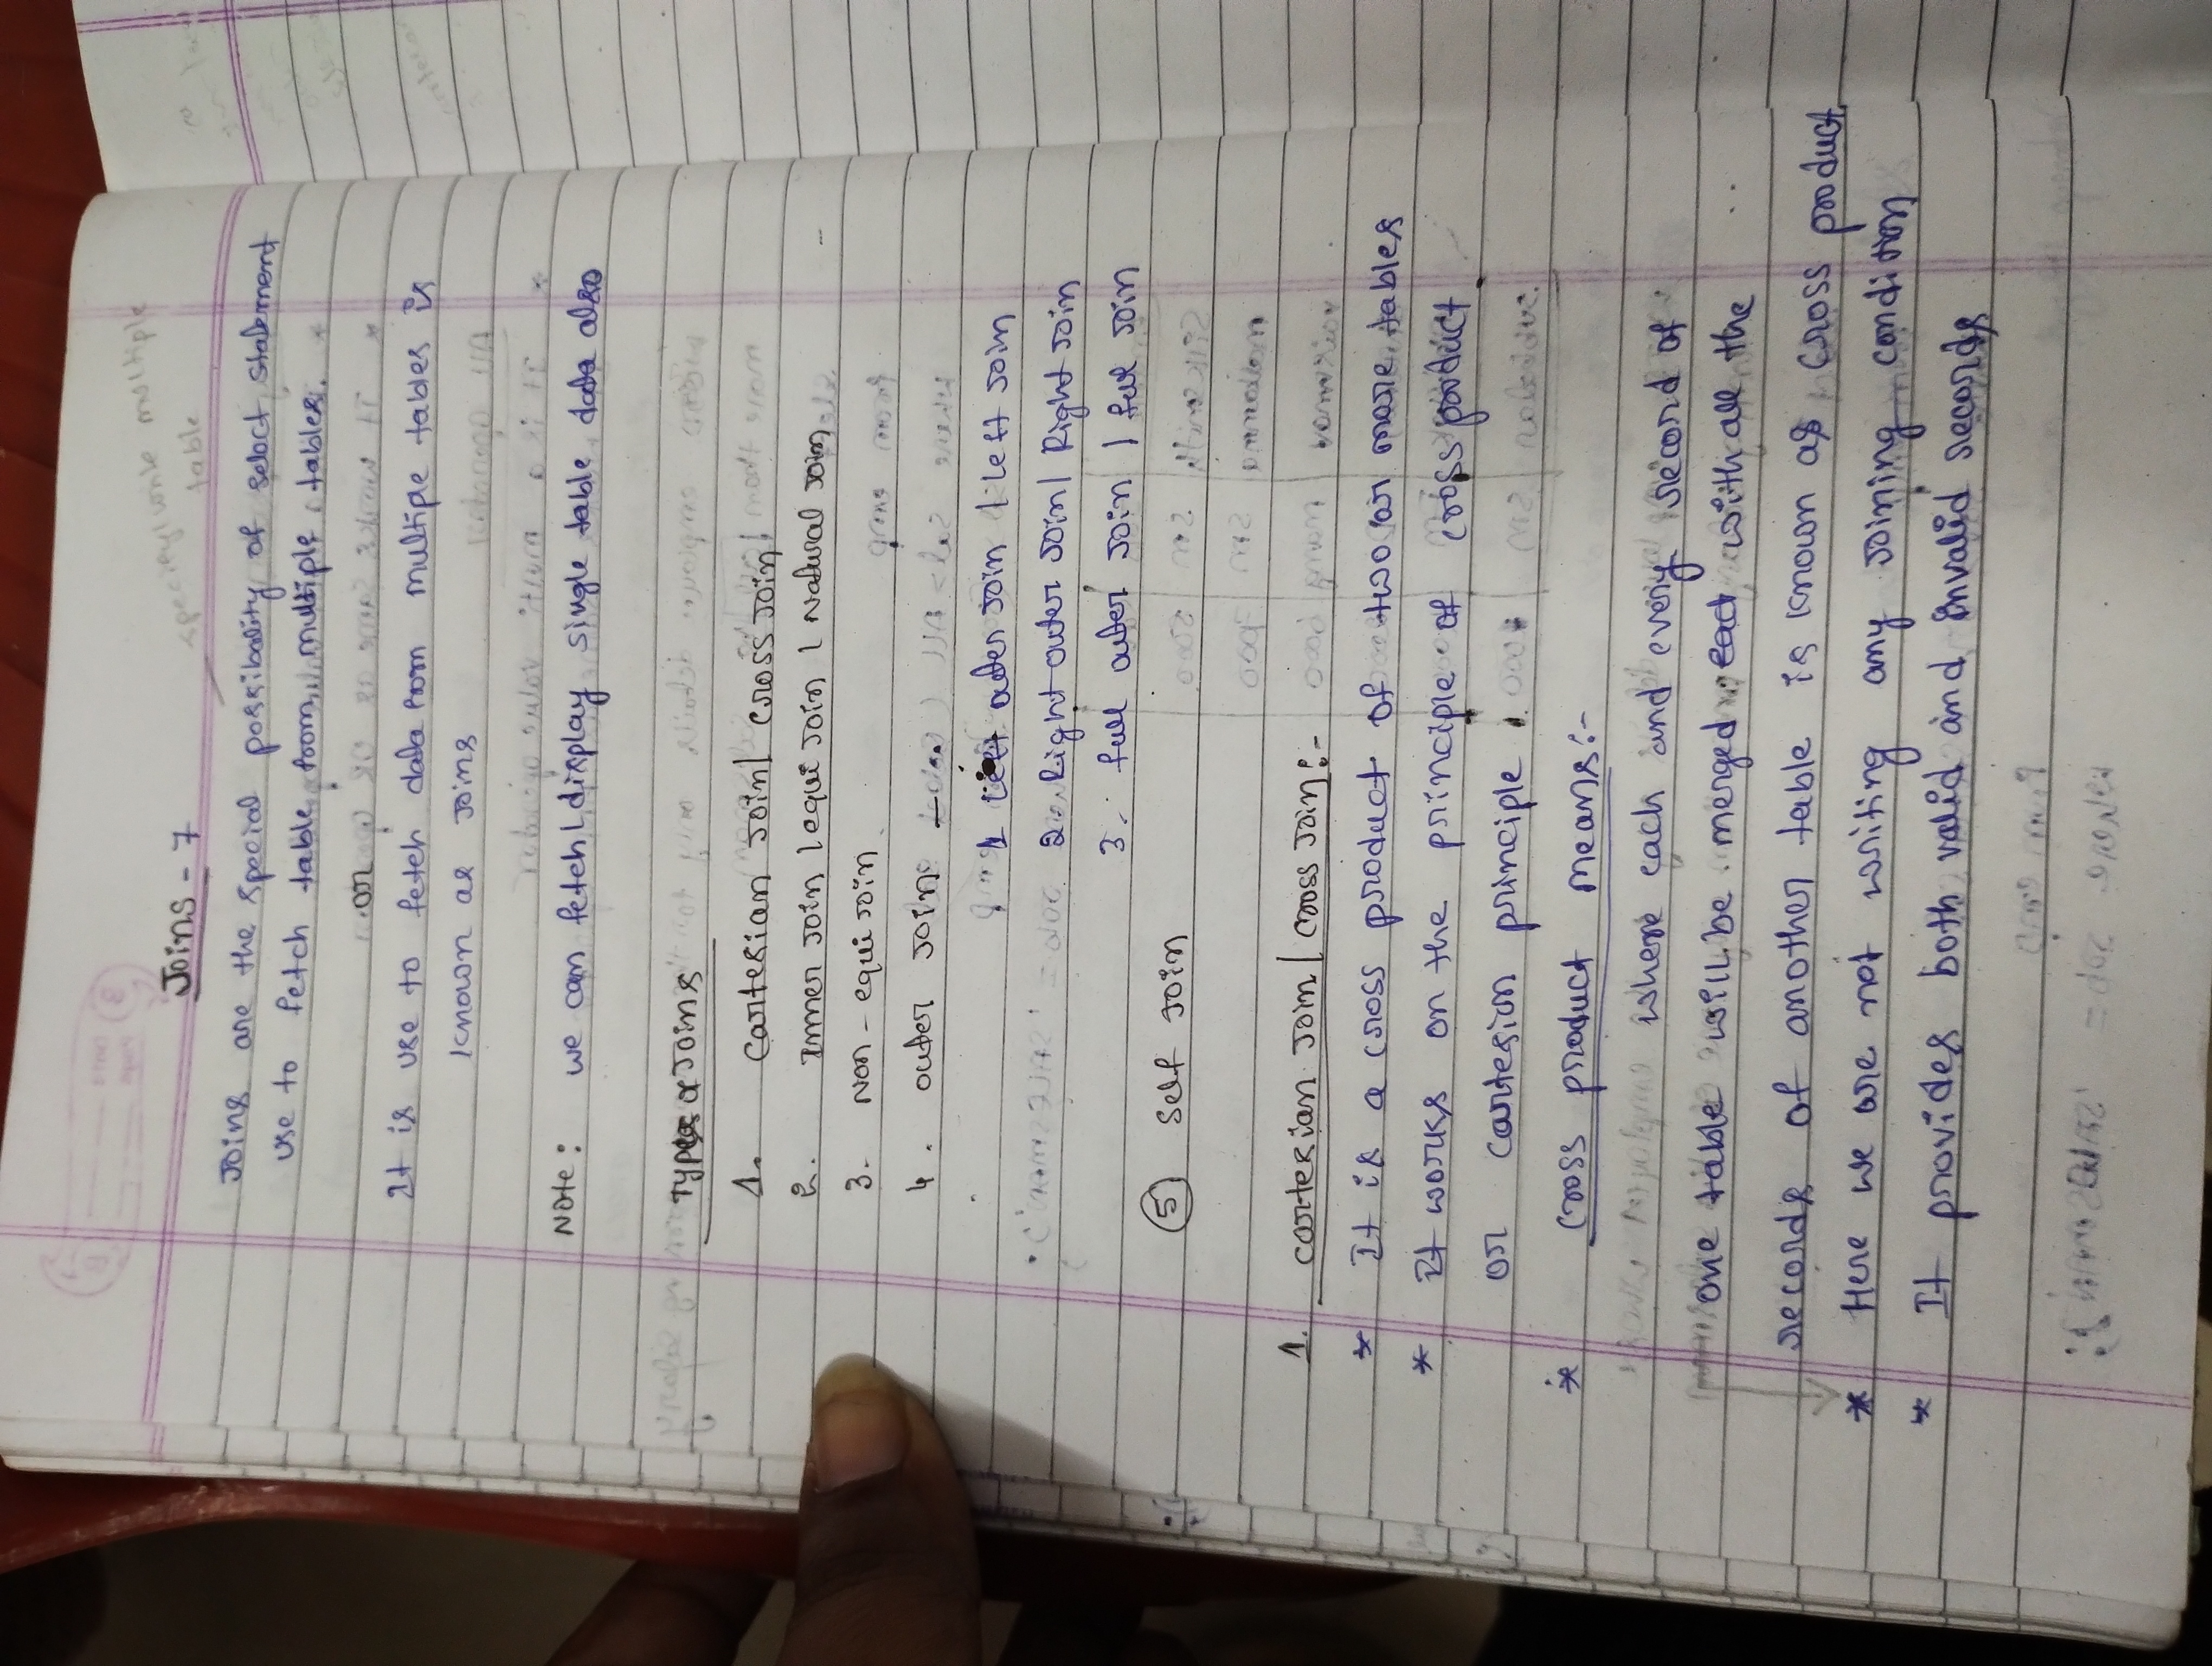 Joins - 7
multiple
table
Joins are the special possibality of select statement
use to fetch table from multiple tables.
or
It is use to fetch data from multiple tables is
known as Joins
Note: we can fetch/display single table data also
Types of Joins
1. Cartesian Join/ Cross Join/
2. Inner Join / equi Join / Natural Join
3. Non-equi Join
4. outer Join -
1 Left outer Join / Left Join
2. Right outer Join/ Right Join
3. full outer Join / full Join
5 Self Join
1. Cartesian Join / Cross Join:-
* It is a cross product of two or more tables
* It works on the principle of cross product
or cartesion principle.
* Cross product means:-
where each and every record of
one table will be merged with all the
records of another table is known as cross product
* Here we are not writing any Joining condition
* It provides both valid and invalid records